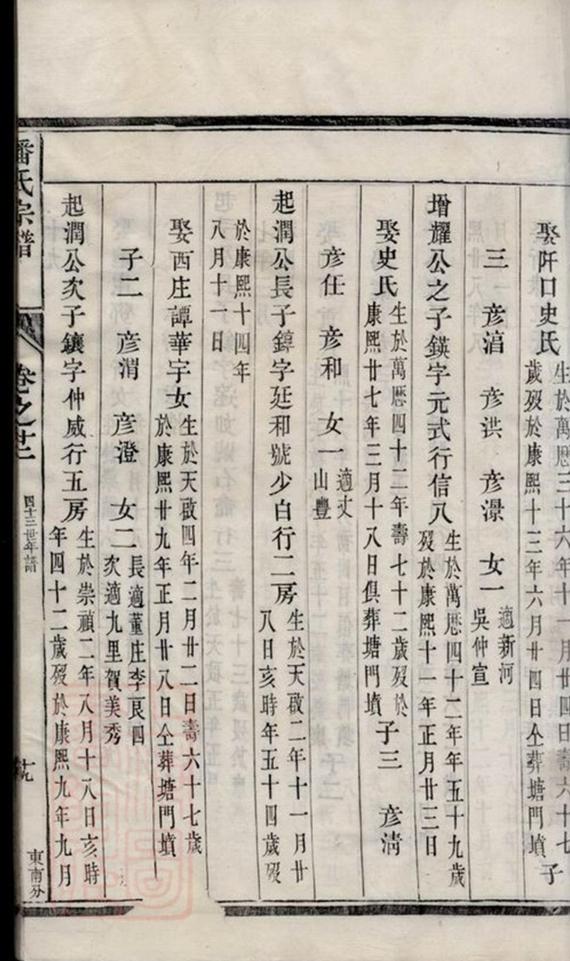 娶阡口史氏 生於萬厯三十六年十一月廿四日壽六十七
歲歿於康熙十三年六月廿四日仝葬塘門墳 子
三 彦湻 彦洪 彦澋 女一 適新河
吳仲宣
增耀公之子鍈字元式行信八 生於萬厯四十二年年五十九歲
歿於康熙十一年正月廿三日
娶史氏 生於萬厯四十二年壽七十二歲歿於
康熙廿七年三月十八日俱葬塘門墳 子三 彦淸
彦任 彦和 女一 適丈
山豐
起潤公長子鐏字延和號少白行二房 生於天啟二年十一月廿
八日亥時年五十四歲歿
於康熙十四年
八月十一日
娶西庄譚華宇女 生於天啟四年二月廿二日壽六十七歲
於康熙廿九年正月廿八日仝葬塘門墳
子二 彦渭 彦澄 女二 長適董庄李艮四
次適九里賀美秀
起潤公次子鑲字仲威行五房 生於崇禎二年八月十八日亥時
年四十二歲歿於康熙九年九月
潘氏宗譜
卷之廿二
四十三世年譜
十九
東南分